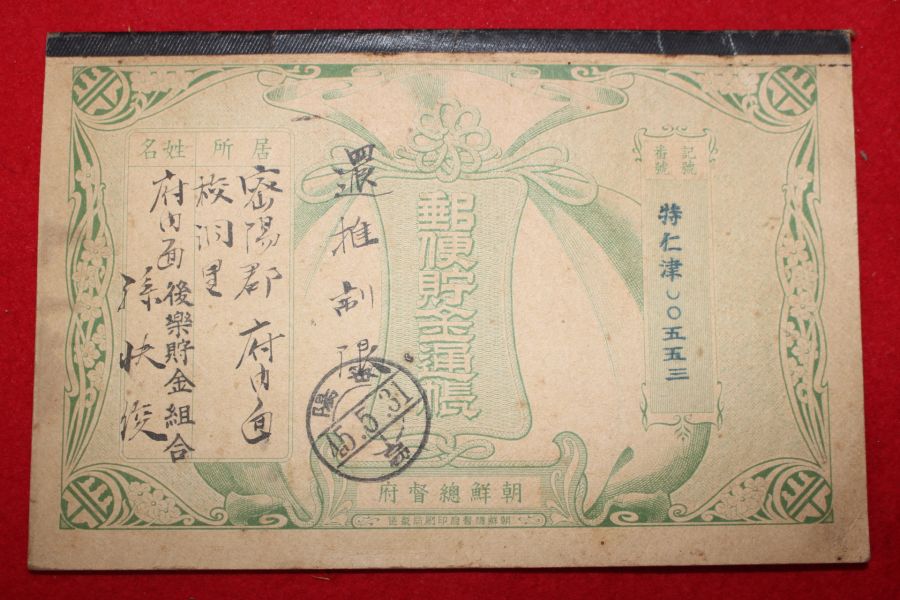 記號
番號
特仁津〇〇五五三
郵便貯金通帳
還推制限
居所
姓名
密陽郡 府內面
校洞里
府內面後樂貯金組合
孫快俊
密陽
45.5.31
朝鮮總督府
朝鮮總督府印刷局製造